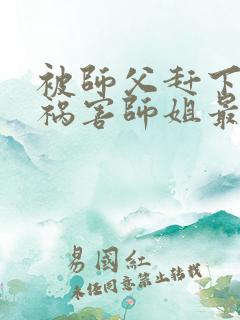 被師父赶下
祸害師姐最
易國紅
未经同意禁止转载